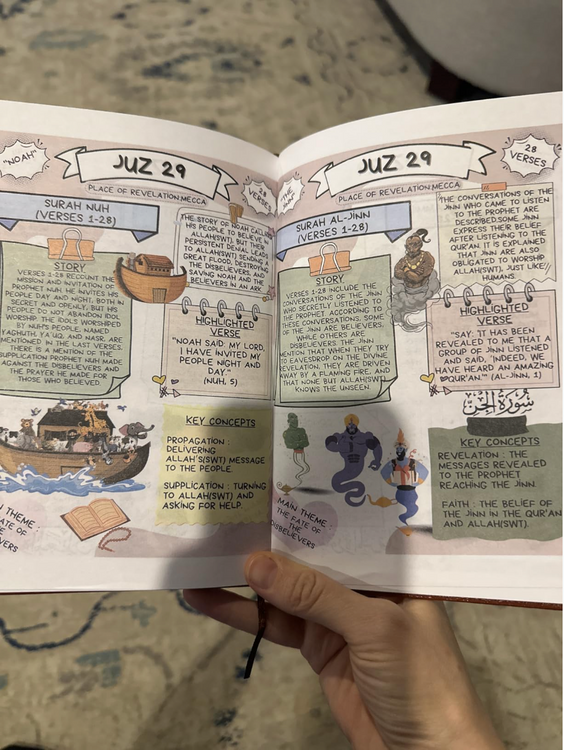 "NOAH"
JUZ 29
28
VERSES
PLACE OF REVELATION:MECCA
SURAH NUH
(VERSES 1-28)
STORY
VERSES 1-28 RECOUNT THE
MISSION AND INVITATION OF
PROPHET NUH. HE INVITES HIS
PEOPLE DAY AND NIGHT, BOTH IN
SECRET AND OPENLY, BUT HIS
PEOPLE DO NOT ABANDON IDOL
WORSHIP. THE IDOLS WORSHIPED
BY NUH'S PEOPLE, NAMED
YAGHUTH, YA'UQ, AND NASR, ARE
MENTIONED IN THE LAST VERSES.
THERE IS A MENTION OF THE
SUPPLICATION PROPHET NUH MADE
AGAINST THE DISBELIEVERS AND
THE PRAYER HE MADE FOR
THOSE WHO BELIEVED.
THE STORY OF NOAH CALLING
HIS PEOPLE TO BELIEVE IN
ALLAH(SWT), BUT THEIR
PERSISTENT DENIAL LEADS
TO ALLAH(SWT) SENDING A
GREAT FLOOD, DESTROYING
THE DISBELIEVERS, AND
SAVING NOAH AND THE
BELIEVERS IN AN ARK.
HIGHLIGHTED
VERSE
"NOAH SAID, MY LORD,
I HAVE INVITED MY
PEOPLE NIGHT AND
DAY."
(NUH, 5)
KEY CONCEPTS
PROPAGATION :
DELIVERING
ALLAH'S(SWT) MESSAGE
TO THE PEOPLE.
SUPPLICATION : TURNING
TO ALLAH(SWT) AND
ASKING FOR HELP.
THEME :
FATE OF
"THE
JINN"
JUZ 29
28
VERSES
PLACE OF REVELATION:MECCA
SURAH AL-JINN
(VERSES 1-28)
STORY
VERSES 1-28 INCLUDE THE
CONVERSATIONS OF THE JINN
WHO SECRETLY LISTENED TO
THE PROPHET. ACCORDING TO
THESE CONVERSATIONS, SOME
OF THE JINN ARE BELIEVERS,
WHILE OTHERS ARE
DISBELIEVERS. THE JINN
MENTION THAT WHEN THEY TRY
TO EAVESDROP ON THE DIVINE
REVELATION, THEY ARE DRIVEN
AWAY BY A FLAMING FIRE, AND
THAT NONE BUT ALLAH(SWT)
KNOWS THE UNSEEN.
THE CONVERSATIONS OF THE
JINN WHO CAME TO LISTEN
TO THE PROPHET ARE
DESCRIBED.SOME JINN
EXPRESS THEIR BELIEF
AFTER LISTENING TO THE
QUR'AN. IT IS EXPLAINED
THAT JINN ARE ALSO
OBLIGATED TO WORSHIP
ALLAH(SWT), JUST LIKE
HUMANS.
HIGHLIGHTED
VERSE
"SAY: 'IT HAS BEEN
REVEALED TO ME THAT A
GROUP OF JINN LISTENED
AND SAID, "INDEED, WE
HAVE HEARD AN AMAZING
QUR'AN."' (AL-JINN, 1)
سورة الجن
KEY CONCEPTS
REVELATION : THE
MESSAGES REVEALED
TO THE PROPHET
REACHING THE JINN
FAITH : THE BELIEF OF
THE JINN IN THE QUR'AN
AND ALLAH(SWT).
MAIN THEME :
THE FATE OF
THE
DISBELIEVERS